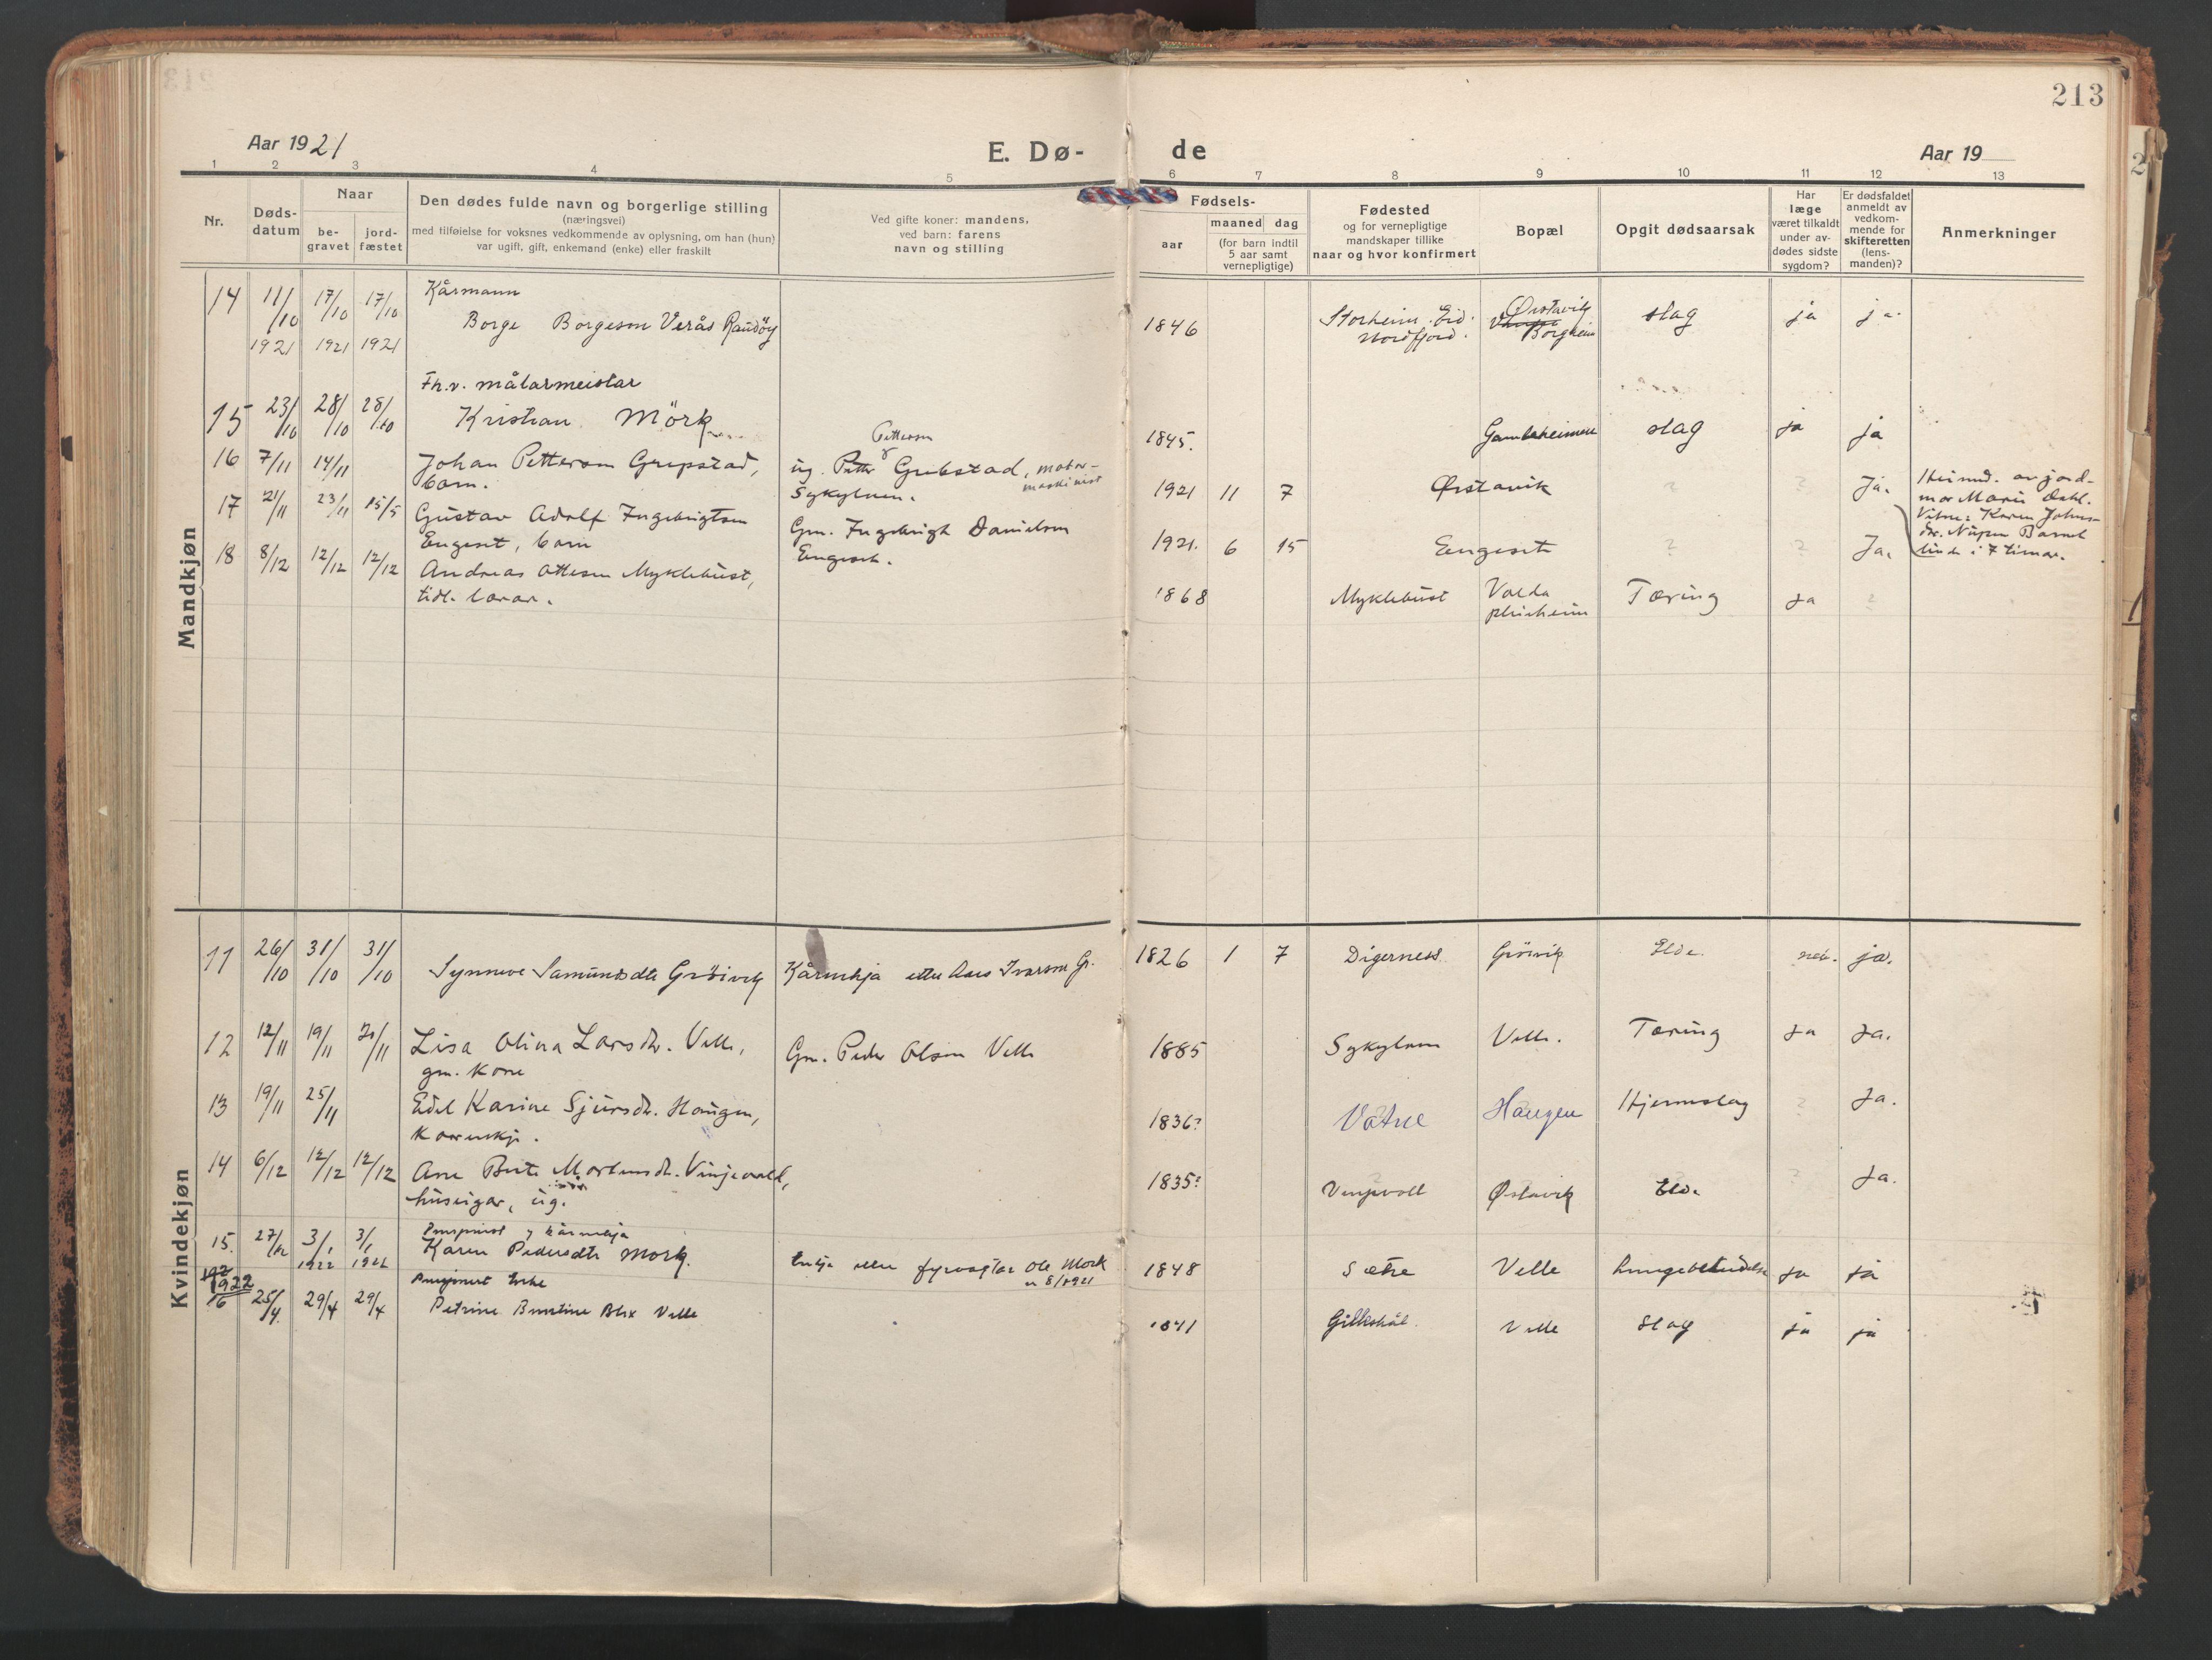 213
Aar 1921
E. Dø-
de
Aar 19
1 2 3 4 5 6 7 8 9 10 11 12 13
Nr.
Døds-
datum
Naar
be-
gravet
jord-
fæstet
Den dødes fulde navn og borgerlige stilling
(næringsvei)
med tilføielse for voksnes vedkommende av oplysning, om han (hun)
var ugift, gift, enkemand (enke) eller fraskilt
Ved gifte koner: mandens,
ved barn: farens
navn og stilling
Fødsels-
aar
maaned dag
(for barn indtil
5 aar samt
vernepligtige)
Fødested
og for vernepligtige
mandskaper tillike
naar og hvor konfirmert
Bopæl
Opgit dødsaarsak
Har
læge
været tilkaldt
under av-
dødes sidste
sygdom?
Er dødsfaldet
anmeldt av
vedkom-
mende for
skifteretten
(lens-
manden)?
Anmerkninger
Mandkjøn
Kårmann
14 11/10 1921 17/10 1921 17/10 1921 Borge Borgeson Verås Raudöy 1846 Storheim. Eid. Nordfjord. Ørstavik Borgheim slag ja ja.
Fh.v. målarmeistar
15 23/10 28/10 28/10 Kristian Mörk 1845. Gamleheimen slag ja ja
16 7/11 14/11 Johan Petterson Grepstad, barn.
ug. Petter Petterson Grebstad, motor-
maskinist
Sykylven.
1921 11 7 Ørstavik ? ? Ja.
Heimed. av jord-
mor Marie Dahl.
Vitne: Karen Johns-
dr. Nupen Barnet
livde i 7 timar.
17 21/11 23/11 15/5 Gustav Adolf Ingebrigtson
Engeset, barn
Gm. Ingebrigt Danielson
Engeset.
1921. 6 15 Engeset ? ? Ja.
18 8/12 12/12 12/12 Andreas Ottesen Myklebust,
tidl. lærar.
1868 Myklebust Volda
pleieheim Tæring Ja ?
Kvindekjøn
11 26/10 31/10 31/10 Synneve Samundsdtr Gröivik Kårenkja etter Aars Ivarson Gr. 1826 1 7 Digerness Gröivik Elde. nei. ja.
12 12/11 19/11 20/11 Lisa Olina Larsdr. Velle,
gm. Kone
Gm. Peder Olson Velle 1885 Sykylven Velle. Tæring Ja Ja.
13 19/11 25/11 Edel Karine Sjursdr. Haugen,
Kårenkje.
1836? Vatne Haugen Hjerneslag ? Ja.
14 6/12 12/12 12/12 Ane Berte Mortensdr. Vinjevoll,
huseigar, ug.
1835? Vinjevoll Ørstavik Elde ? Ja.
Pensjonist og kårenkja
15. 27/12 3/1 1922 3/1 1922 Karen Pedersdtr Mork. Enkja etter fyrvagtar Ole Mork
1848 Sætre Velle Lungebetendelse Ja ja
1922
Pensjonist Enke
16 25/4. 29/4 29/4 Petrine Berntine Blix Velle 1841 Gilleskål. Velle Slag ja ja